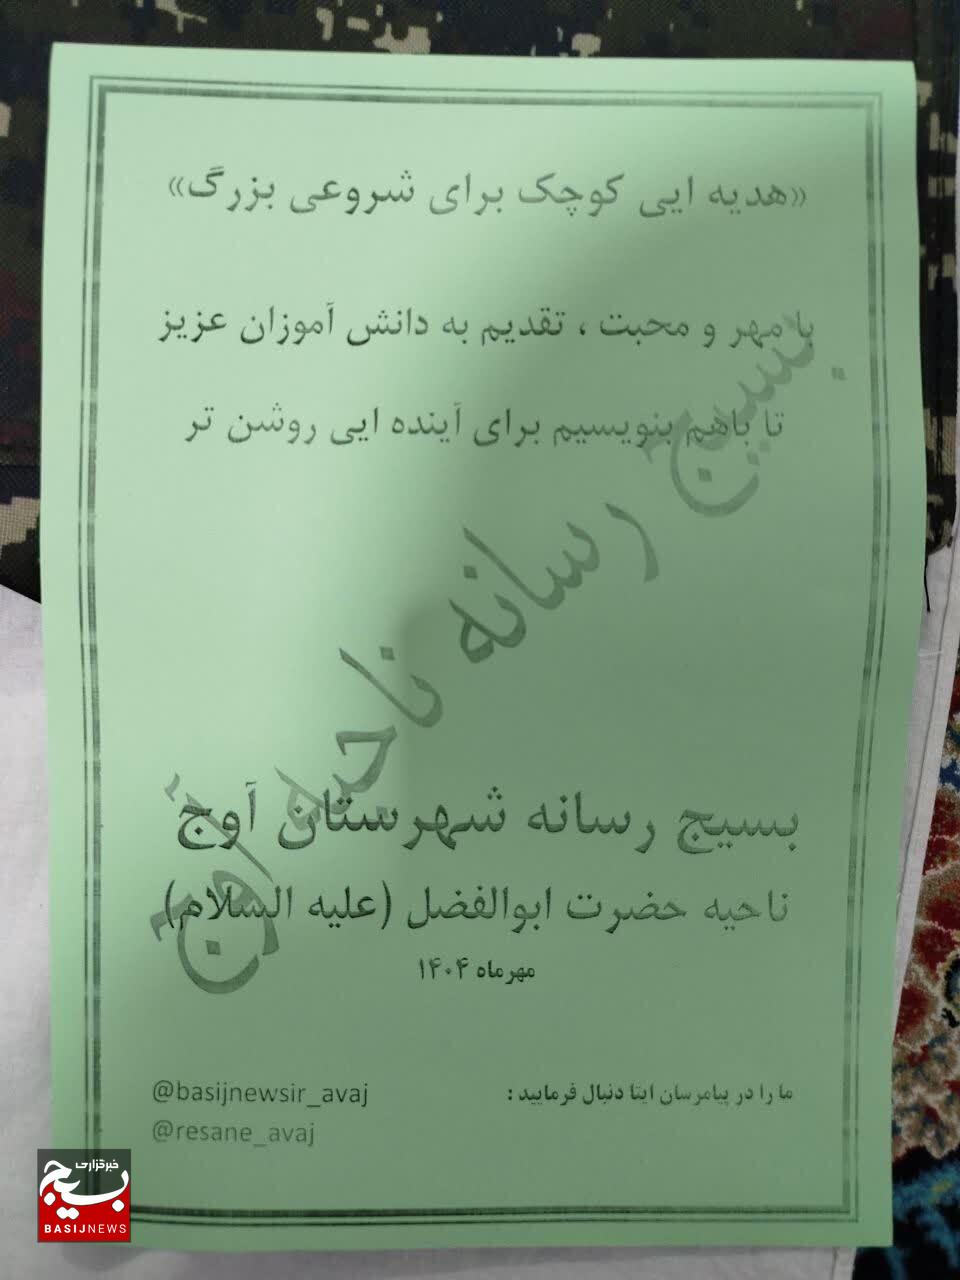 «هدیه ایی کوچک برای شروعی بزرگ»
با مهر و محبت ، تقدیم به دانش آموزان عزیز
تا باهم بنویسیم برای آینده ایی روشن تر
بسیج رسانه ناحیه آوج
بسیج رسانه شهرستان آوج
ناحیه حضرت ابوالفضل (علیه السلام)
مهرماه ۱۴۰۴
ما را در پیامرسان ایتا دنبال فرمایید : @basijnewsir_avaj
@resane_avaj
خبرگزاری
بسیج
BASIJNEWS